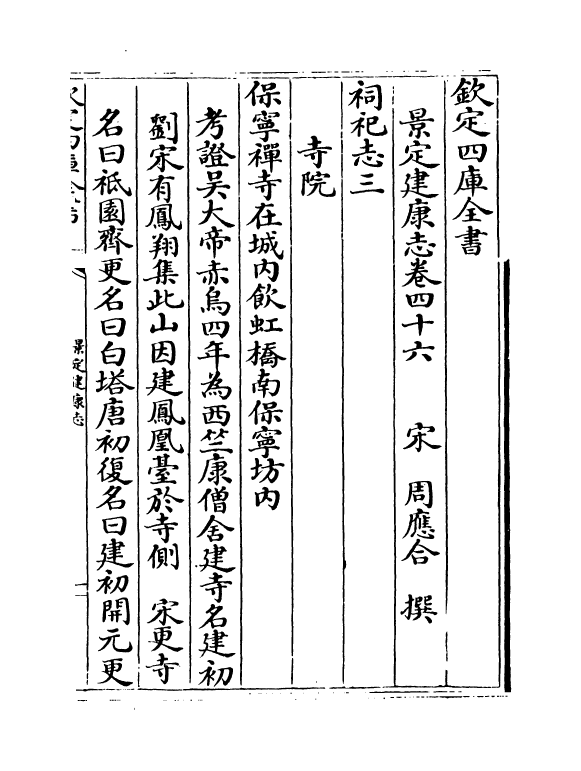 欽定四庫全書
景定建康志卷四十六 宋 周應合 撰
祠祀志三
寺院
保寧禪寺在城内飲虹橋南保寧坊内
考證吳大帝赤烏四年為西竺康僧舍建寺名建初
劉宋有鳳翔集此山因建鳳凰臺於寺側 宋更寺
名曰祇園齊更名曰白塔唐初復名曰建初開元更
景定建康志